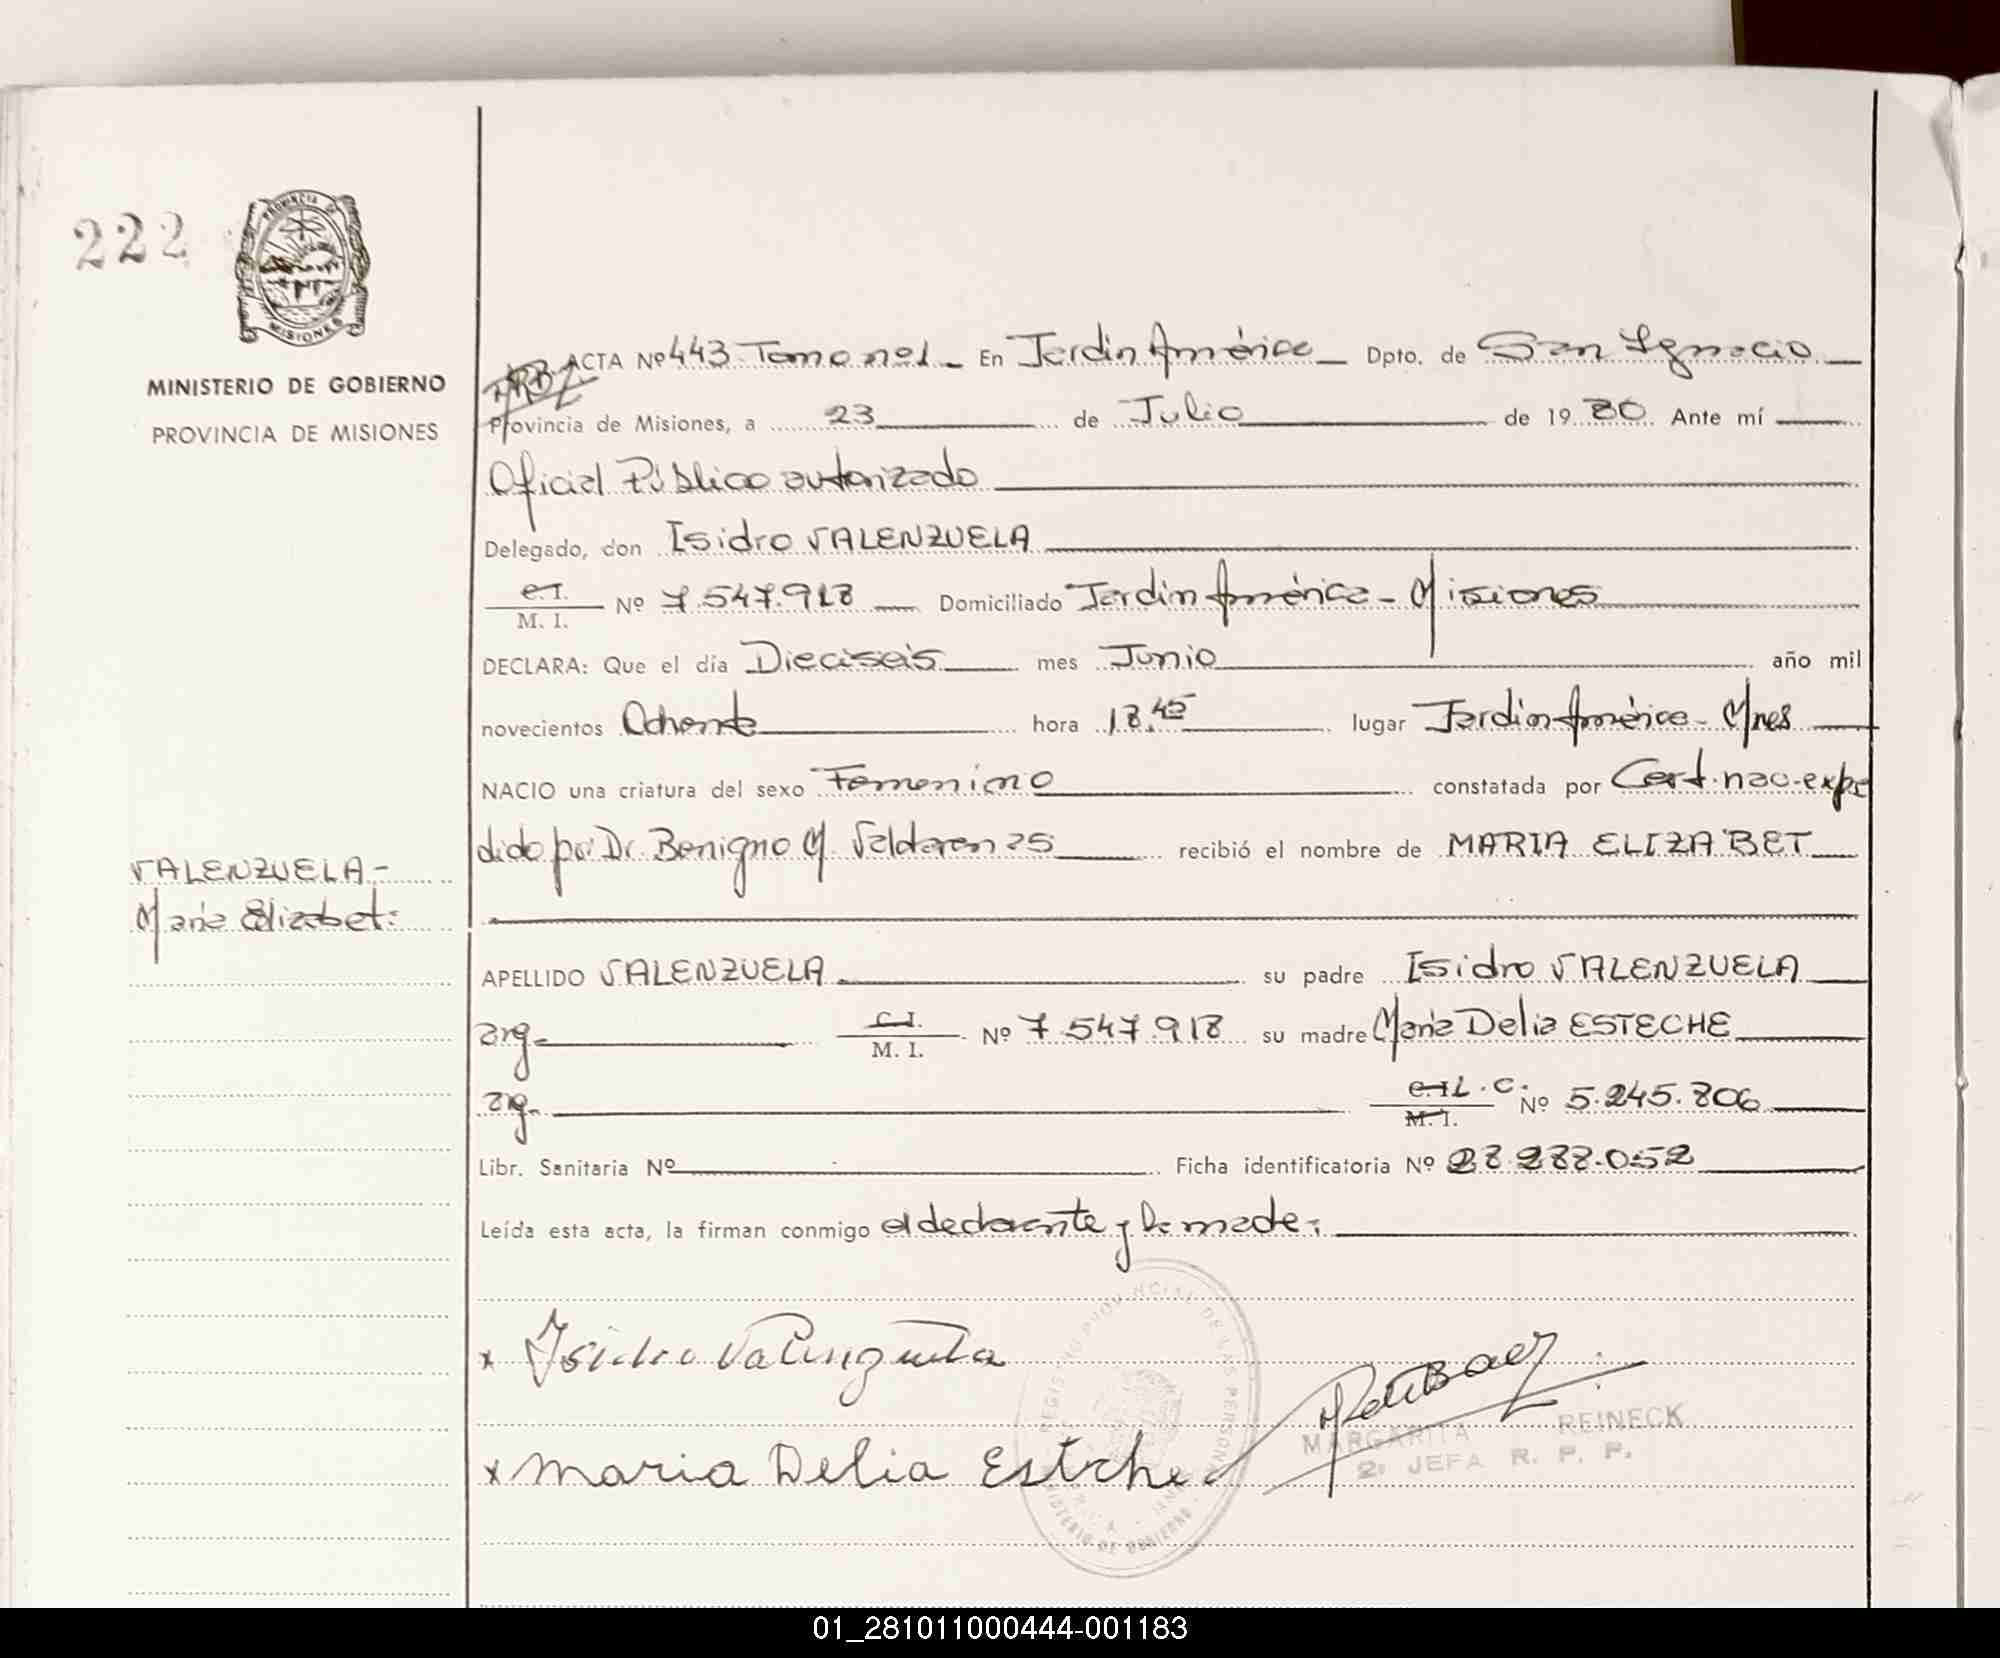 222
PROVINCIA DE
MISIONES
MINISTERIO DE GOBIERNO
PROVINCIA DE MISIONES
ACTA Nº 443 Tomo nº1 - En Jardin América - Dpto. de San Ignacio
Provincia de Misiones, a 23 de Julio de 1980 Ante mí
Oficial Público autorizado
Delegado, don Isidro VALENZUELA
C.I.
M. I. Nº 7.547.918 Domiciliado Jardin América - Misiones
DECLARA: Que el día Dieciseis mes Junio año mil
novecientos Ochenta hora 18.45 lugar Jardin América - Mnes
NACIO una criatura del sexo Femenino constatada por Cert. nac. expe
dido por Dr. Benigno M. recibió el nombre de MARIA ELIZABET
VALENZUELA -
Maria Elizabet.
APELLIDO VALENZUELA su padre Isidro VALENZUELA
arg. C.I.
M. I. Nº 7.547.918 su madre Maria Delia ESTECHE
arg. C.I. L.C.
M. I. Nº 5.245.806
Libr. Sanitaria Nº Ficha identificatoria Nº 28.288.052
Leída esta acta, la firman conmigo el declarante y la madre.
x Isidro Valenzuela
x maria Delia Esteche
REGISTRO PROVINCIAL DE LAS PERSONAS
MINISTERIO DE GOBIERNO
MARGARITA REINECK
2º JEFA R. P. P.
01_281011000444-001183